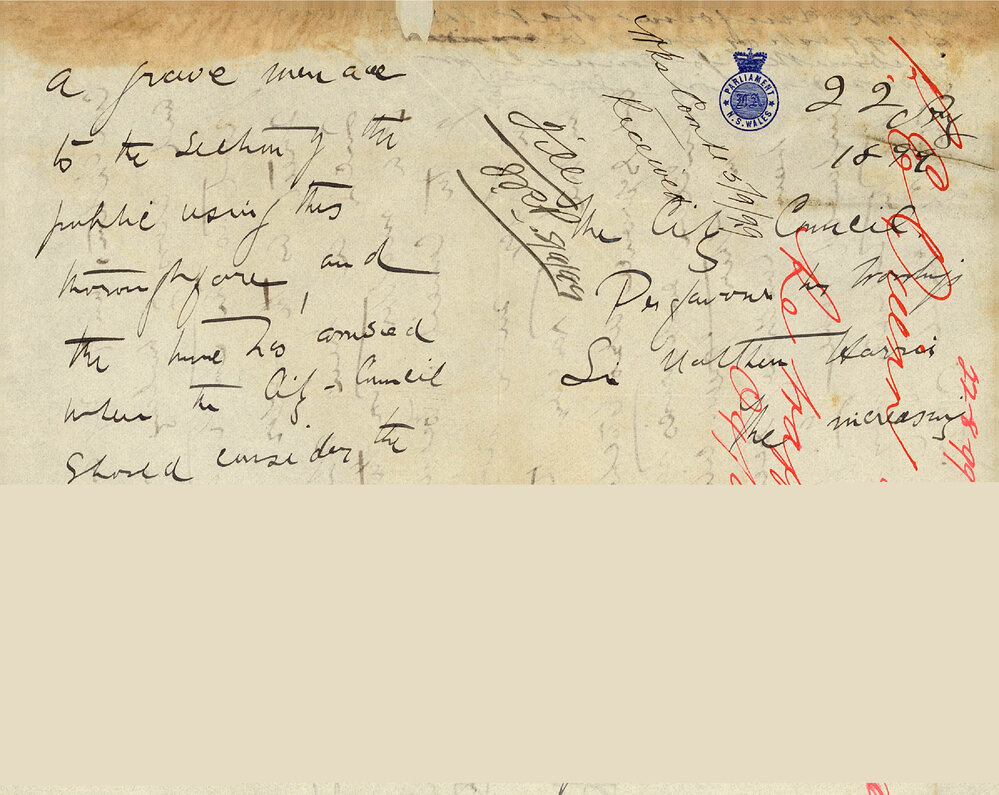 a grave menace
to the section of the
public using this
thoroughfare, and
the time has arrived
when the City Council
should consider the
PARLIAMENT
N. S. WALES
22
1899
The City Council.
his Worship
Sir Matthew Harris
The increasing
Wks Comtee 5/9/99
Received
File
5/9/99
22 8 99